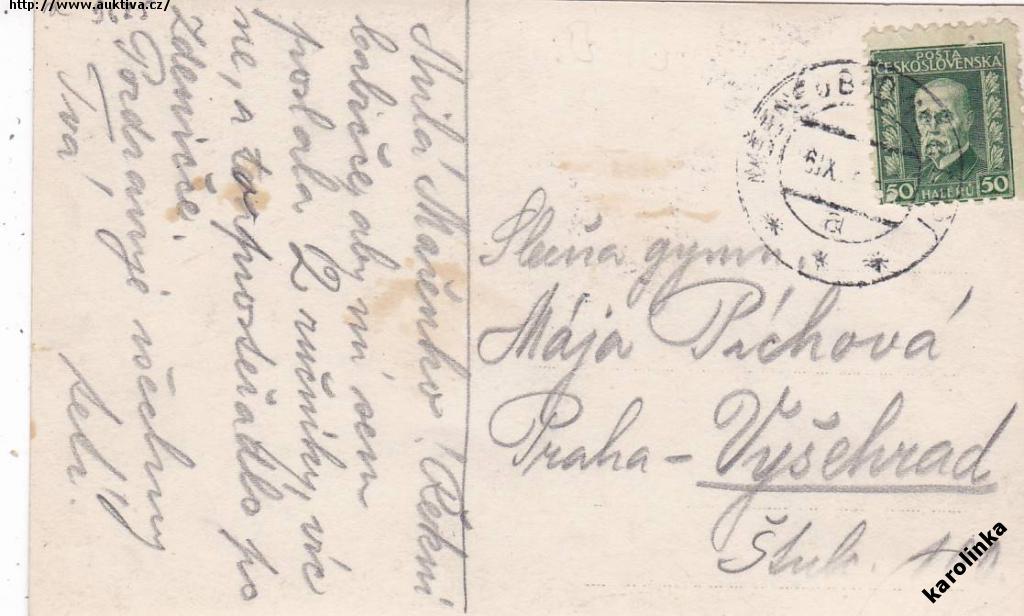 http://www.auktiva.cz/
Milá Mařenko! Řekni
babičce, aby mi sem
poslala 2 ručníky, víc
ne, a to po
Zdeničce.
Pozdravuje všechny
Tva,
POŠTA
ČESKOSLOVENSKA
50 HALÉŘŮ 50
6 IX
a
Slečna gymn.
Mája Píchová
Praha – Vyšehrad
karolinka